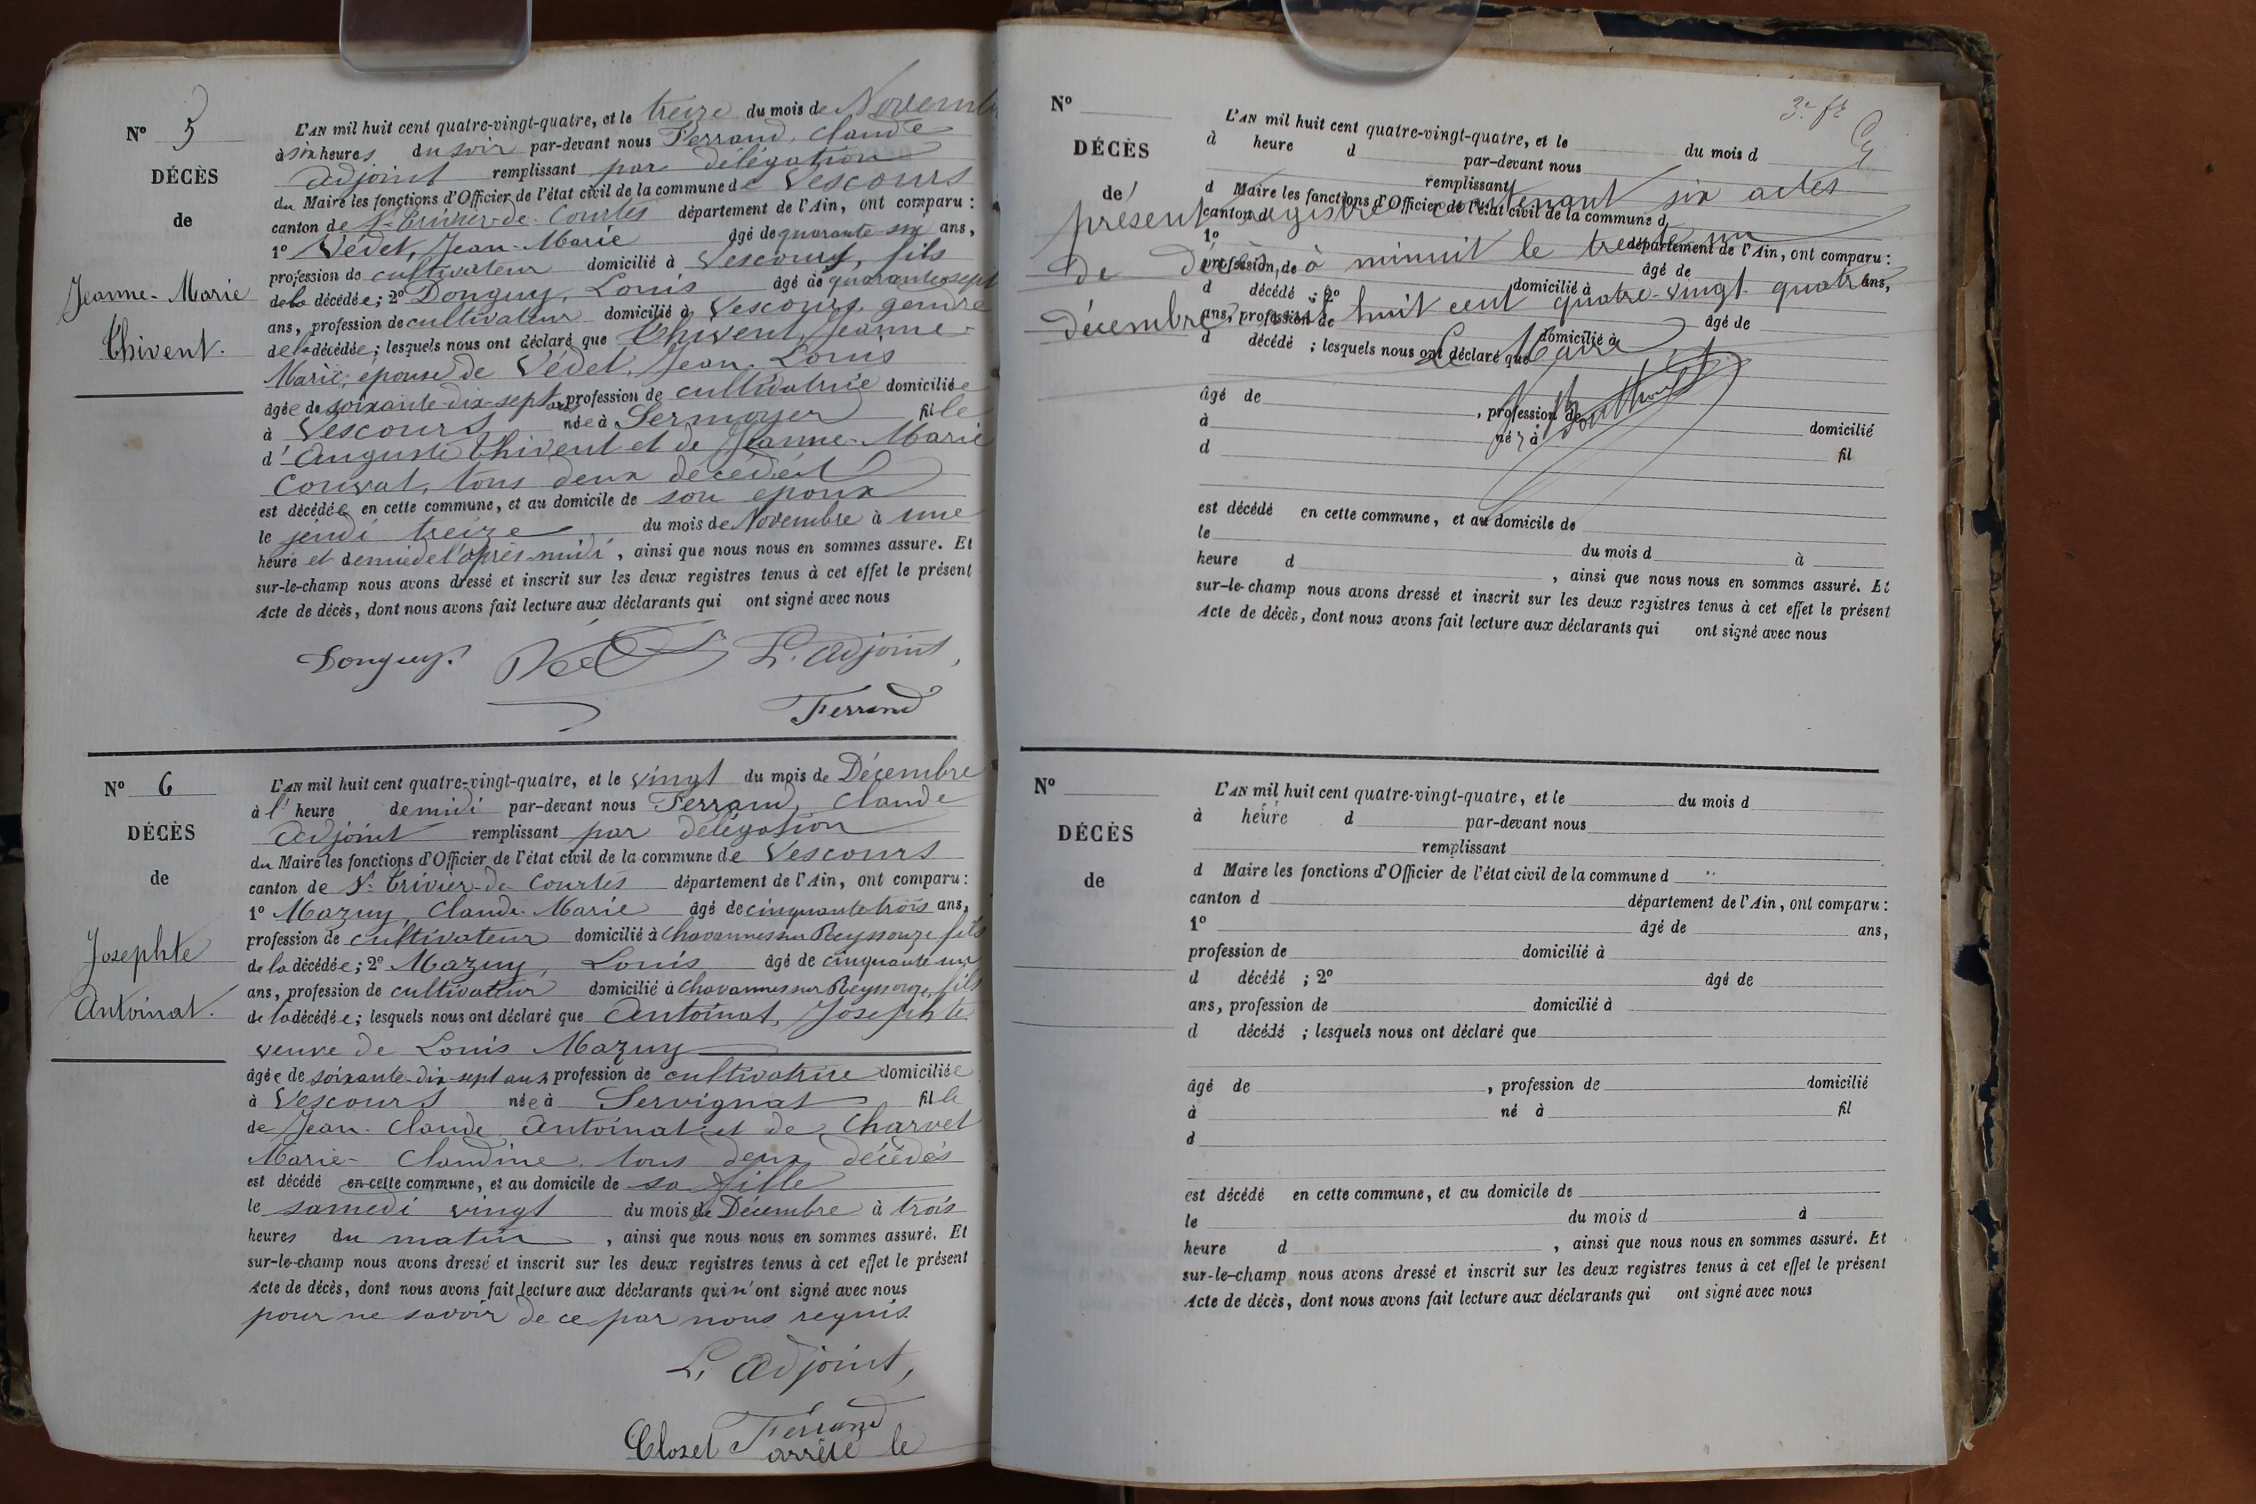 N° 5
DÉCÈS
de
Jeanne-Marie
Thivent.
L'AN mil huit cent quatre-vingt-quatre, et le treize du mois de Novembre
à six heures du soir par-devant nous Ferrand, Claude
adjoint remplissant par délégation
du Maire les fonctions d'Officier de l'état civil de la commune de Vescours
canton de St Trivier-de-Courtes département de l'Ain, ont comparu :
1° Védet, Jean-Marie âgé de quarante-six ans,
profession de cultivateur domicilié à Vescours, fils
de la décédée ; 2° Donguy, Louis âgé de quarante-sept
ans, profession de cultivateur domicilié à Vescours, gendre
de la décédée ; lesquels nous ont déclaré que Thivent, Jeanne-
Marie, épouse de Védet, Jean Louis
âgée de soixante-dix-sept ans profession de cultivatrice domiciliée
à Vescours née à Sermoyer fille
d'Auguste Thivent et de Jeanne-Marie
Couvat, tous deux décédés
est décédée en cette commune, et au domicile de son époux
le jeudi treize du mois de Novembre à une
heure et demie de l'après-midi, ainsi que nous nous en sommes assuré. Et
sur-le-champ nous avons dressé et inscrit sur les deux registres tenus à cet effet le présent
Acte de décès, dont nous avons fait lecture aux déclarants qui ont signé avec nous
Donguy. L'adjoint,
Ferrand
N° 6
DÉCÈS
de
Josephte
Antoinat.
L'AN mil huit cent quatre-vingt-quatre, et le vingt du mois de Décembre
à l'heure de midi par-devant nous Ferrand, Claude
adjoint remplissant par délégation
du Maire les fonctions d'Officier de l'état civil de la commune de Vescours
canton de St Trivier-de-Courtes département de l'Ain, ont comparu :
1° Mazuy, Claude-Marie âgé de cinquante trois ans,
profession de cultivateur domicilié à Chavannes sur Reyssouze fils
de la décédée ; 2° Mazuy, Louis âgé de cinquante un
ans, profession de cultivateur domicilié à Chavannes sur Reyssouze, fils
de la décédée ; lesquels nous ont déclaré que Antoinat, Josephte
veuve de Louis Mazuy
âgée de soixante-dix-sept ans profession de cultivatrice domiciliée
à Vescours née à Servignat fille
de Jean-Claude Antoinat et de Charvet
Marie-Claudine, tous deux décédés
est décédé en cette commune, et au domicile de sa fille
le samedi vingt du mois de Décembre à trois
heures du matin, ainsi que nous nous en sommes assuré. Et
sur-le-champ nous avons dressé et inscrit sur les deux registres tenus à cet effet le présent
Acte de décès, dont nous avons fait lecture aux déclarants qui n'ont signé avec nous
pour ne savoir de ce par nous requis.
L'adjoint,
Ferrand
Clos et arrêté le
N°
DÉCÈS
de
L'AN mil huit cent quatre-vingt-quatre, et le du mois d
à heure d par-devant nous
remplissant
d Maire les fonctions d'Officier de l'état civil de la commune d
présent registre contenant six actes
canton d département de l'Ain, ont comparu :
1° âgé de ans,
de décès, à minuit le trente un
profession de domicilié à
d décédé ; 2° âgé de
décembre mil huit cent quatre-vingt quatre
ans, profession de domicilié à
d décédé ; lesquels nous ont déclaré que
Le Maire
âgé de , profession de domicilié
à né à fil
d
est décédé en cette commune, et au domicile de
le du mois d à
heure d , ainsi que nous nous en sommes assuré. Et
sur-le-champ nous avons dressé et inscrit sur les deux registres tenus à cet effet le présent
Acte de décès, dont nous avons fait lecture aux déclarants qui ont signé avec nous
N°
DÉCÈS
de
L'AN mil huit cent quatre-vingt-quatre, et le du mois d
à heure d par-devant nous
remplissant
d Maire les fonctions d'Officier de l'état civil de la commune d
canton d département de l'Ain, ont comparu :
1° âgé de ans,
profession de domicilié à
d décédé ; 2° âgé de
ans, profession de domicilié à
d décédé ; lesquels nous ont déclaré que
âgé de , profession de domicilié
à né à fil
d
est décédé en cette commune, et au domicile de
le du mois d à
heure d , ainsi que nous nous en sommes assuré. Et
sur-le-champ nous avons dressé et inscrit sur les deux registres tenus à cet effet le présent
Acte de décès, dont nous avons fait lecture aux déclarants qui ont signé avec nous